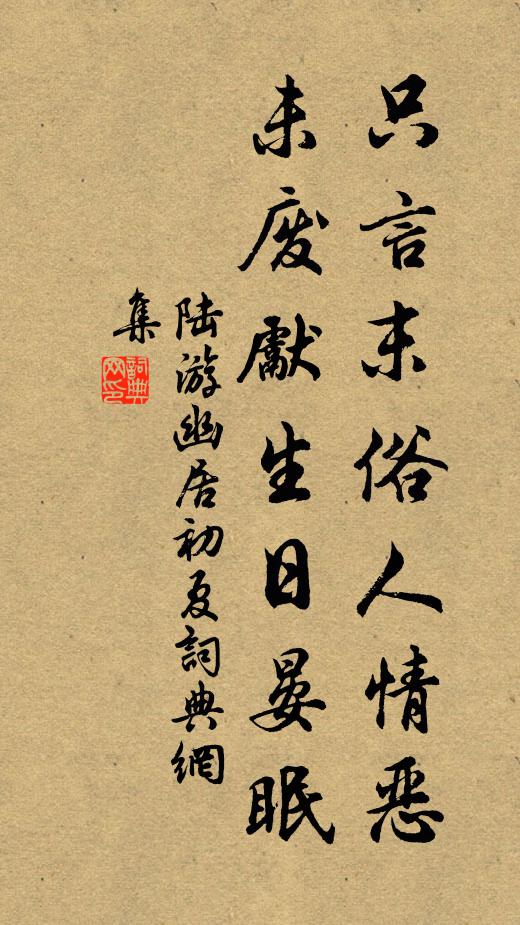 只言末俗人情恶
未废獻生日晏眠
陆游幽居初夏詞典網
集
詞典
网印